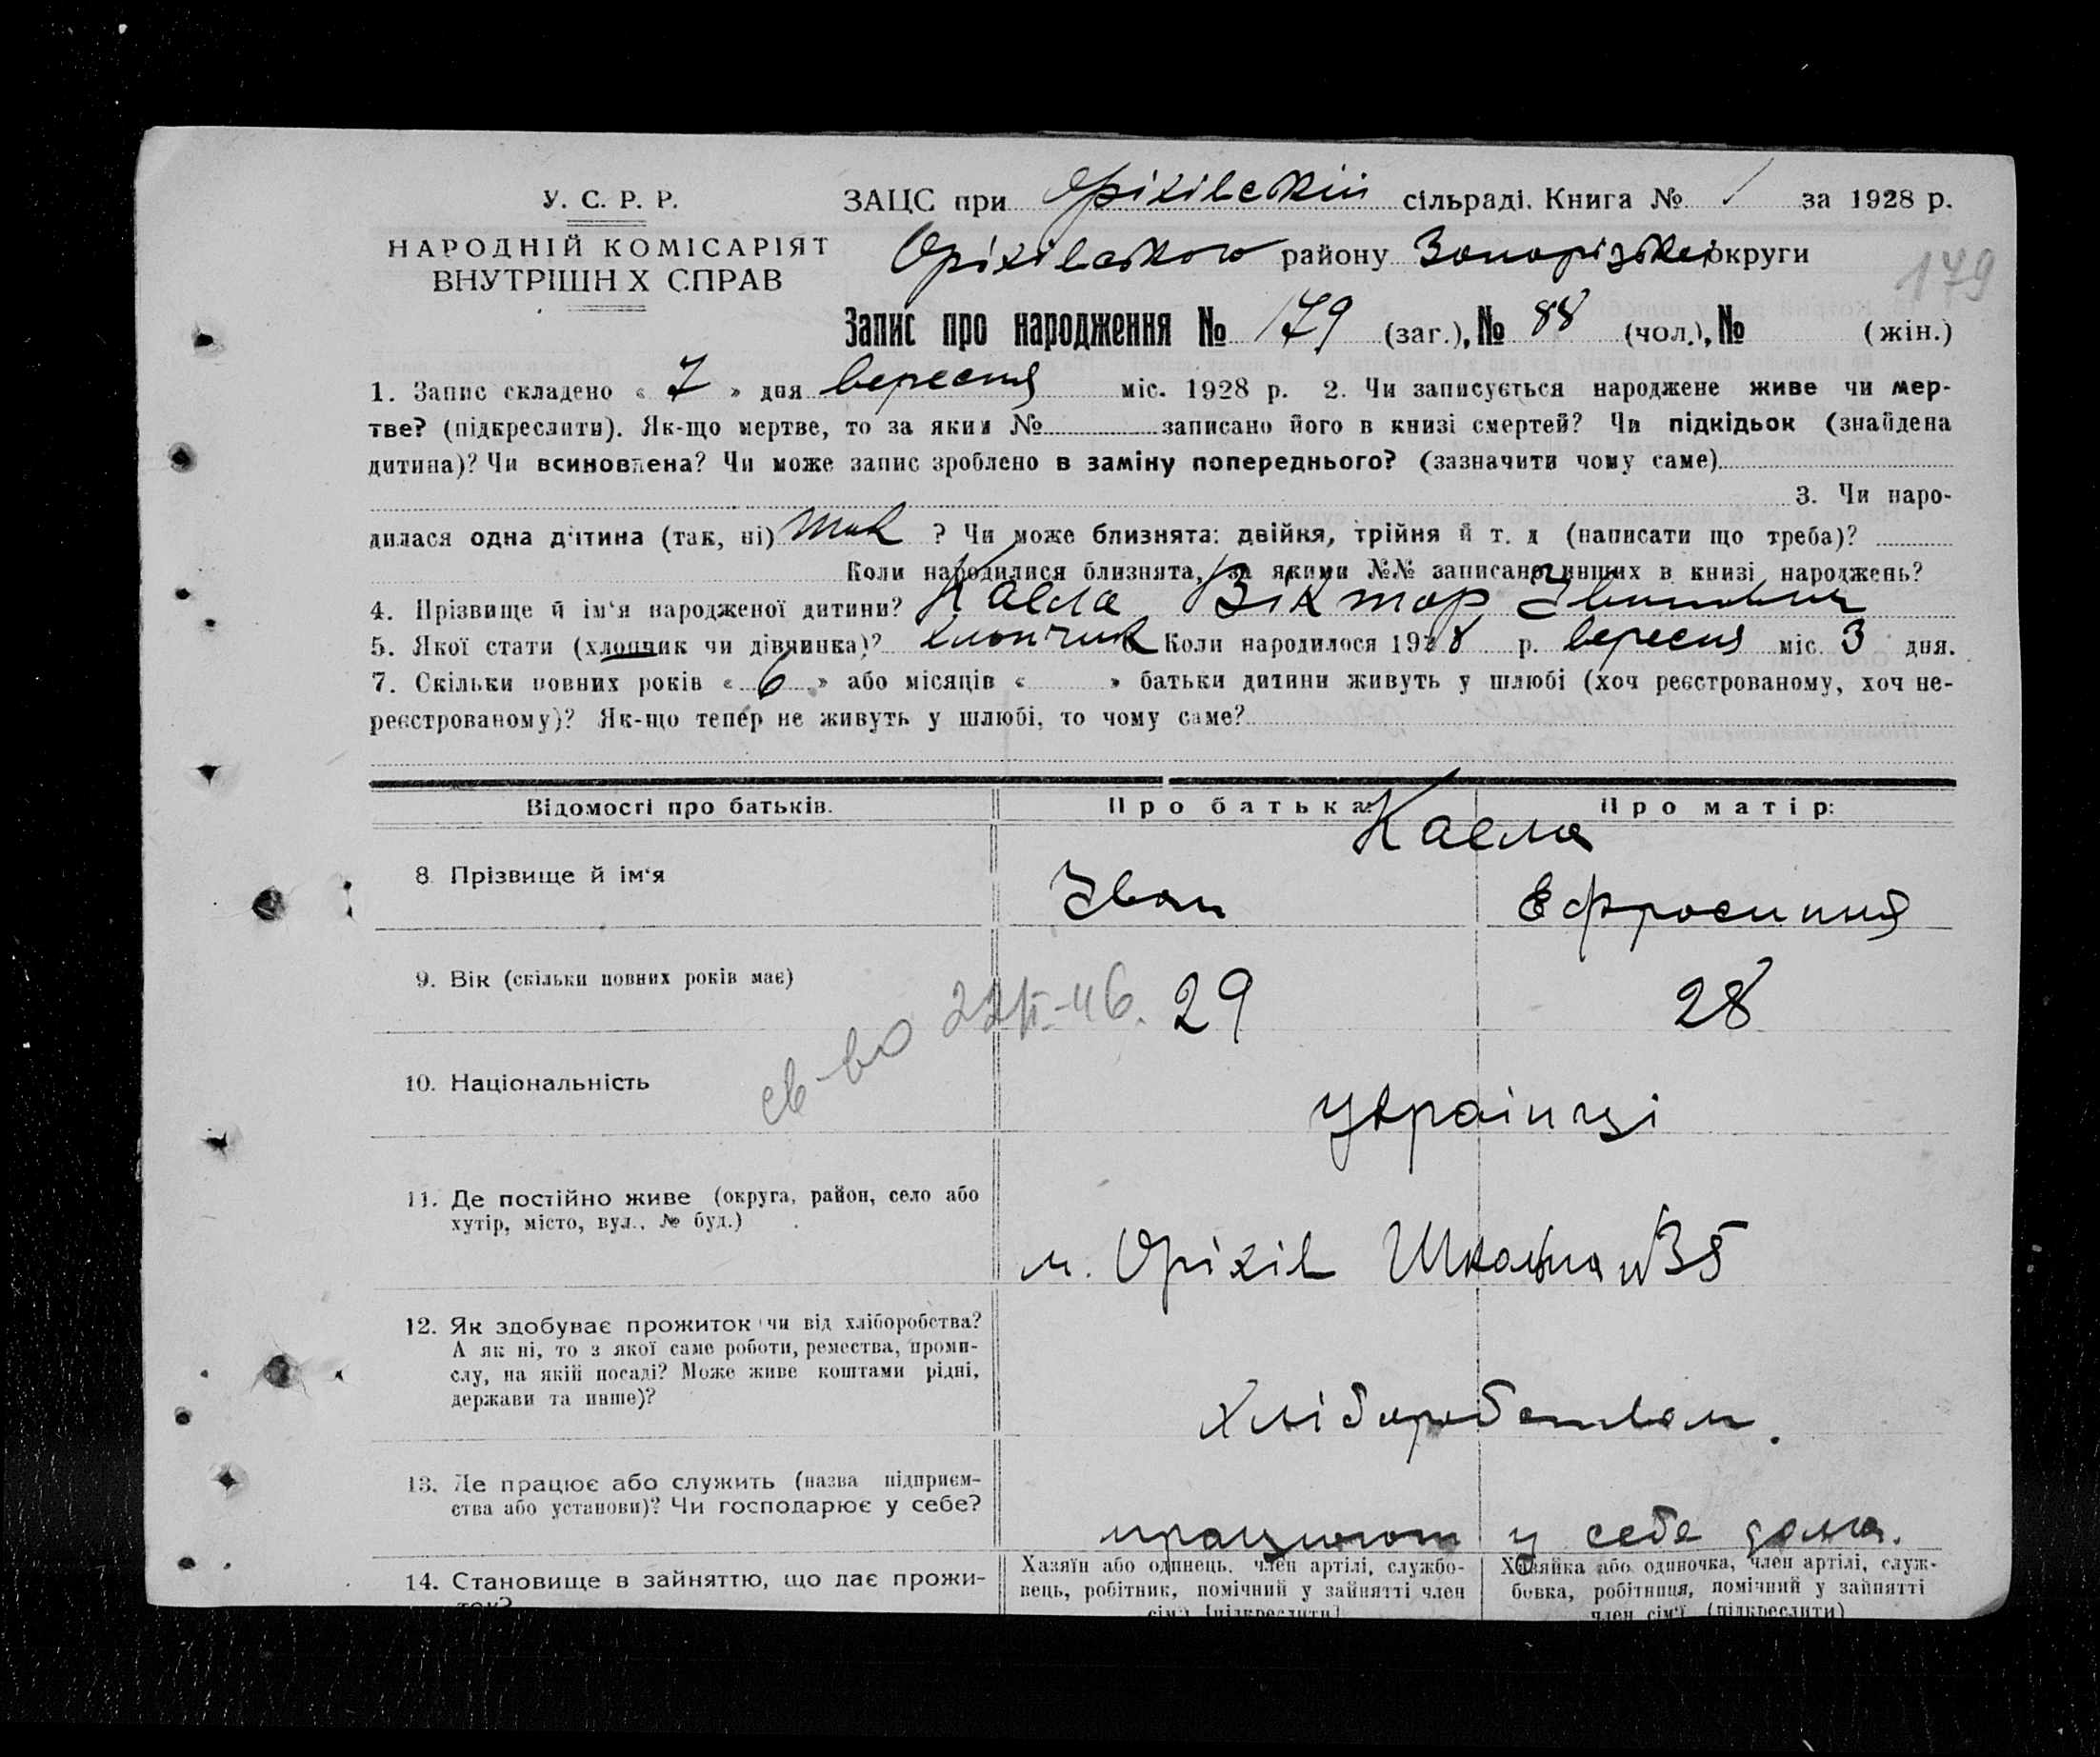 У. С. Р. Р.
НАРОДНІЙ КОМІСАРІЯТ
ВНУТРІШН Х СПРАВ
ЗАЦС при Оріхівській сільраді. Книга № 1 за 1928 р.
Оріхівського району Запорізької округи
179
Запис про народження № 179 (заг.), № 88 (чол.), № (жін.)
1. Запис складено « 7 » дня вересня міс. 1928 р. 2. Чи записується народжене живе чи мер-
тве? (підкреслити). Як-що мертве, то за яким № записано його в книзі смертей? Чи підкідьок (знайдена
дитина)? Чи всиновлена? Чи може запис зроблено в заміну попереднього? (зазначити чому саме)
3. Чи наро-
дилася одна дитина (так, ні) так ? Чи може близнята: двійня, трійня й т. д (написати що треба)?
Коли народилися близнята, за якими №№ записано инших в книзі народжень?
4. Прізвище й ім'я народженої дитини? Касла Віктор Іванович
5. Якої стати (хлопчик чи дівчинка)? хлопчик Коли народилося 1928 р. вересня міс. 3 дня.
7. Скільки повних років « 6 » або місяців « » батьки дитини живуть у шлюбі (хоч реєстрованому, хоч не-
реєстрованому)? Як-що тепер не живуть у шлюбі, то чому саме?
Відомості про батьків. Про батька: Про матір:
Касла
8. Прізвище й ім'я Іван Ефросиния
9. Вік (скільки повних років має) 29 28
св-во 22/II-46.
10. Національність українці
11. Де постійно живе (округа, район, село або
хутір, місто, вул., № буд.)
м. Оріхів №35
12. Як здобуває прожиток чи від хліборобства?
А як ні, то з якої саме роботи, ремества, проми-
слу, на якій посаді? Може живе коштами рідні,
держави та инше)?
Хліборобством.
13. Де працює або служить (назва підприєм-
ства або установи)? Чи господарює у себе?
працюют у себе дома.
14. Становище в зайняттю, що дає прожи-
ток?
Хазяїн або одинець, член артілі, службо-
вець, робітник, помічний у зайнятті член
сім'ї (підкреслити)
Хазяйка або одиночка, член артілі, служ-
бовка, робітниця, помічний у зайнятті
член сім'ї (підкреслити)